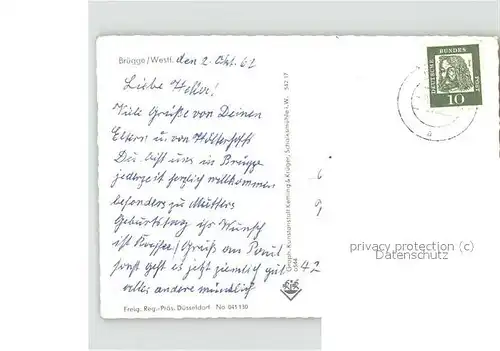 Brügge/Westf. den 2. Okt. 61
Liebe
Viele Grüße von Deinen
Eltern u. von
Du bist uns in Brügge
jederzeit herzlich willkommen
besonders zu Mutters
Geburtstag ihr Wunsch
ist Kaffee / Gruß an Paul
sonst geht es jetzt ziemlich gut
alles andere mündlich
Freig. Reg.-Präs. Düsseldorf No 041130
Graph. Kunstanstalt Kettling & Krüger, Schalksmühle i.W. 542 17
6
9
42
DEUTSCHE BUNDESPOST
10
privacy protection (c)
Datenschutz